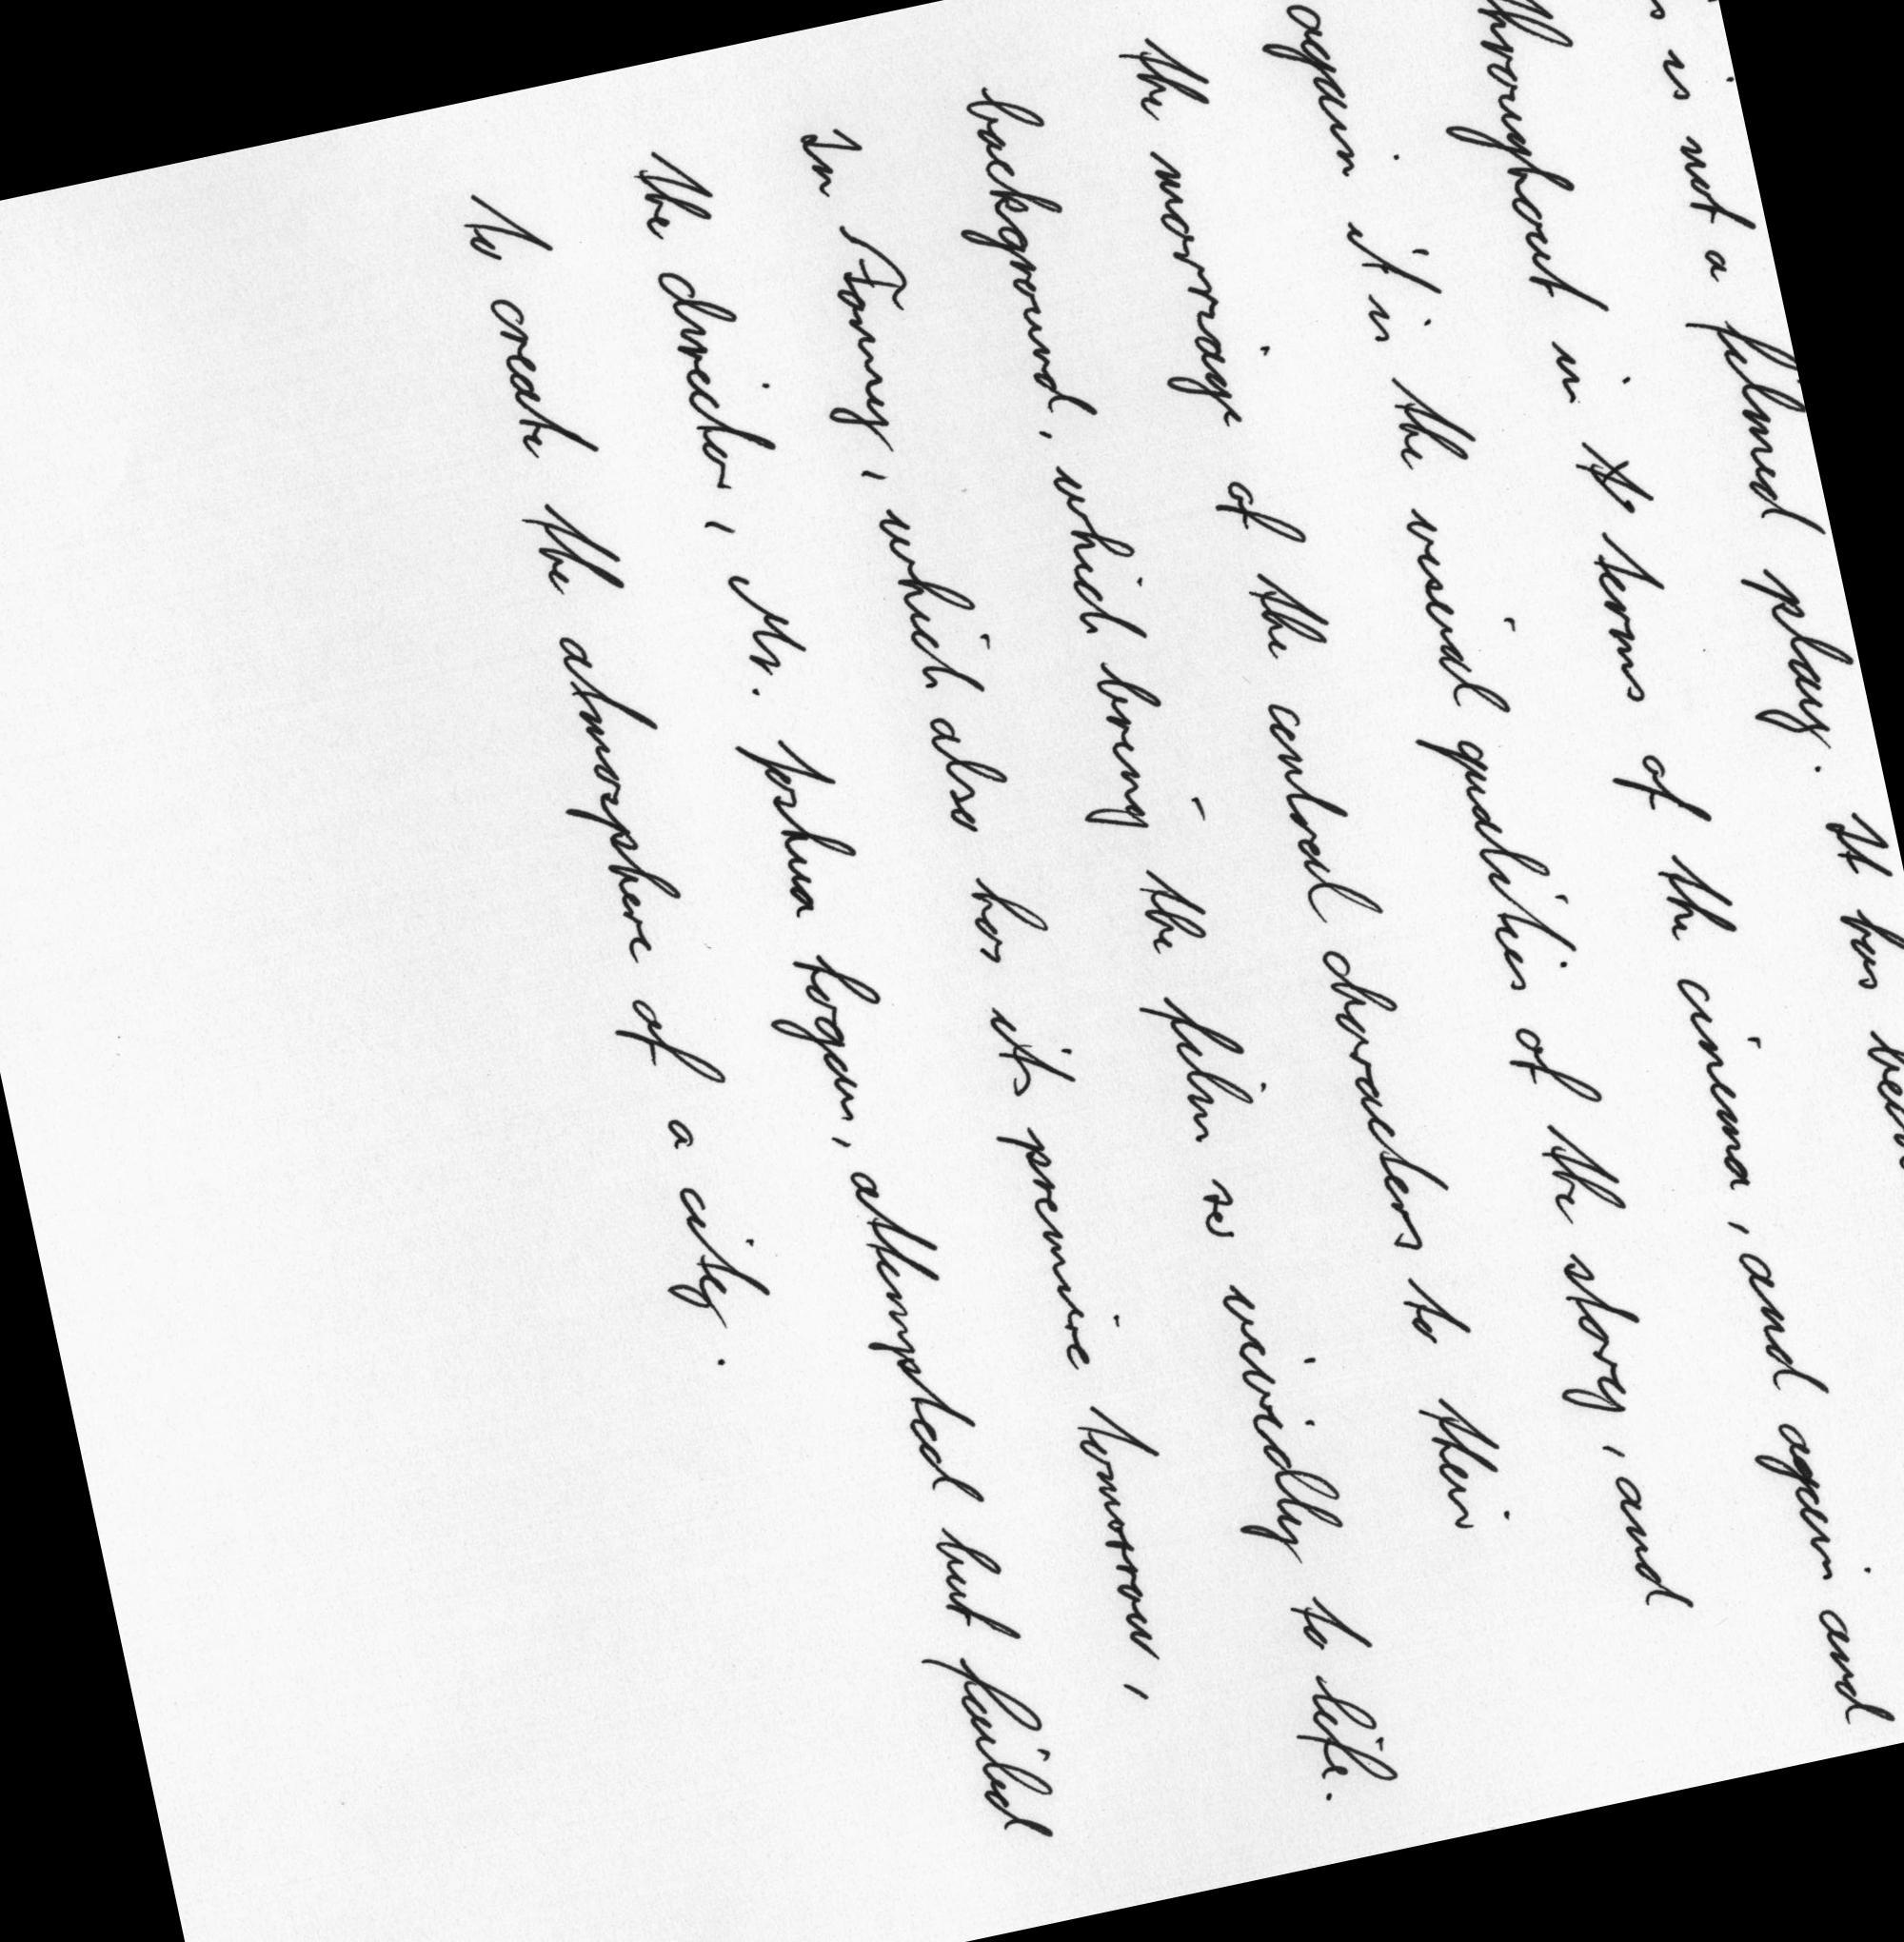 is not a filmed play. It has been
throughout in terms of the cinema, and again and
again it is the visual qualities of the story, and
the marriage of the central characters to their
background, which bring the film so vividly to life.
In Fanny, which also has its premiere tomorrow,
the director, Mr. Joshua Logan, attempted but failed
to create the atmosphere of a city.